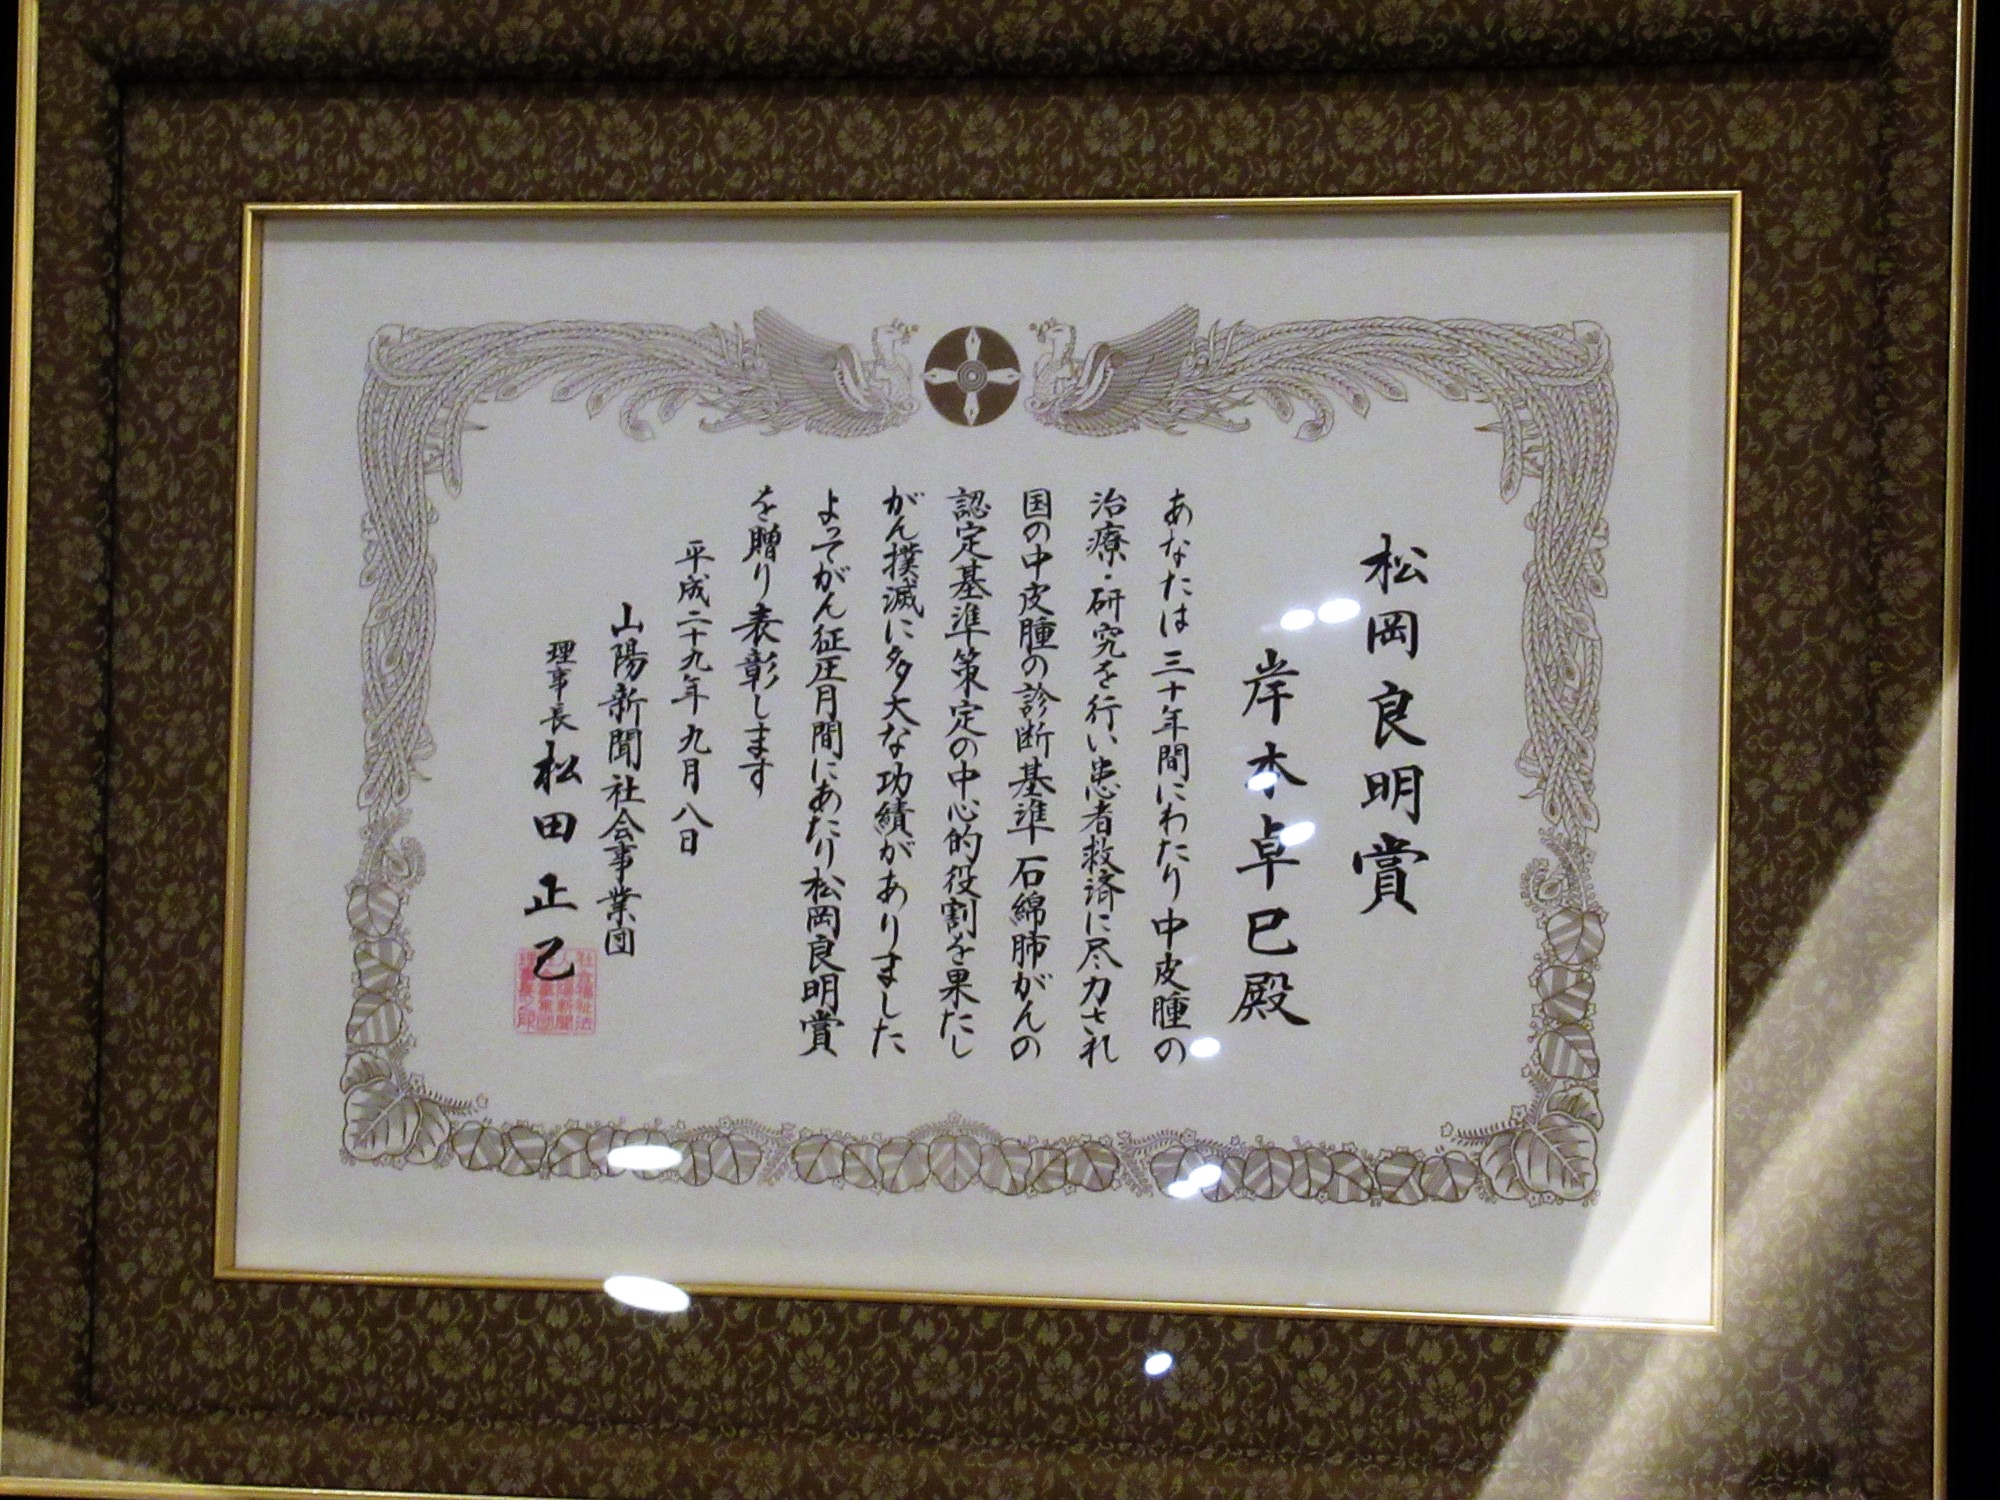 松岡良明賞
岸本卓巳殿
あなたは三十年間にわたり中皮腫の
治療・研究を行い患者救済に尽力され
国の中皮腫の診断基準 石綿肺がんの
認定基準策定の中心的役割を果たし
がん撲滅に多大な功績がありました
よってがん征圧月間にあたり松岡良明賞
を贈り表彰します
平成二十九年九月八日
山陽新聞社会事業団
理事長 松田正己